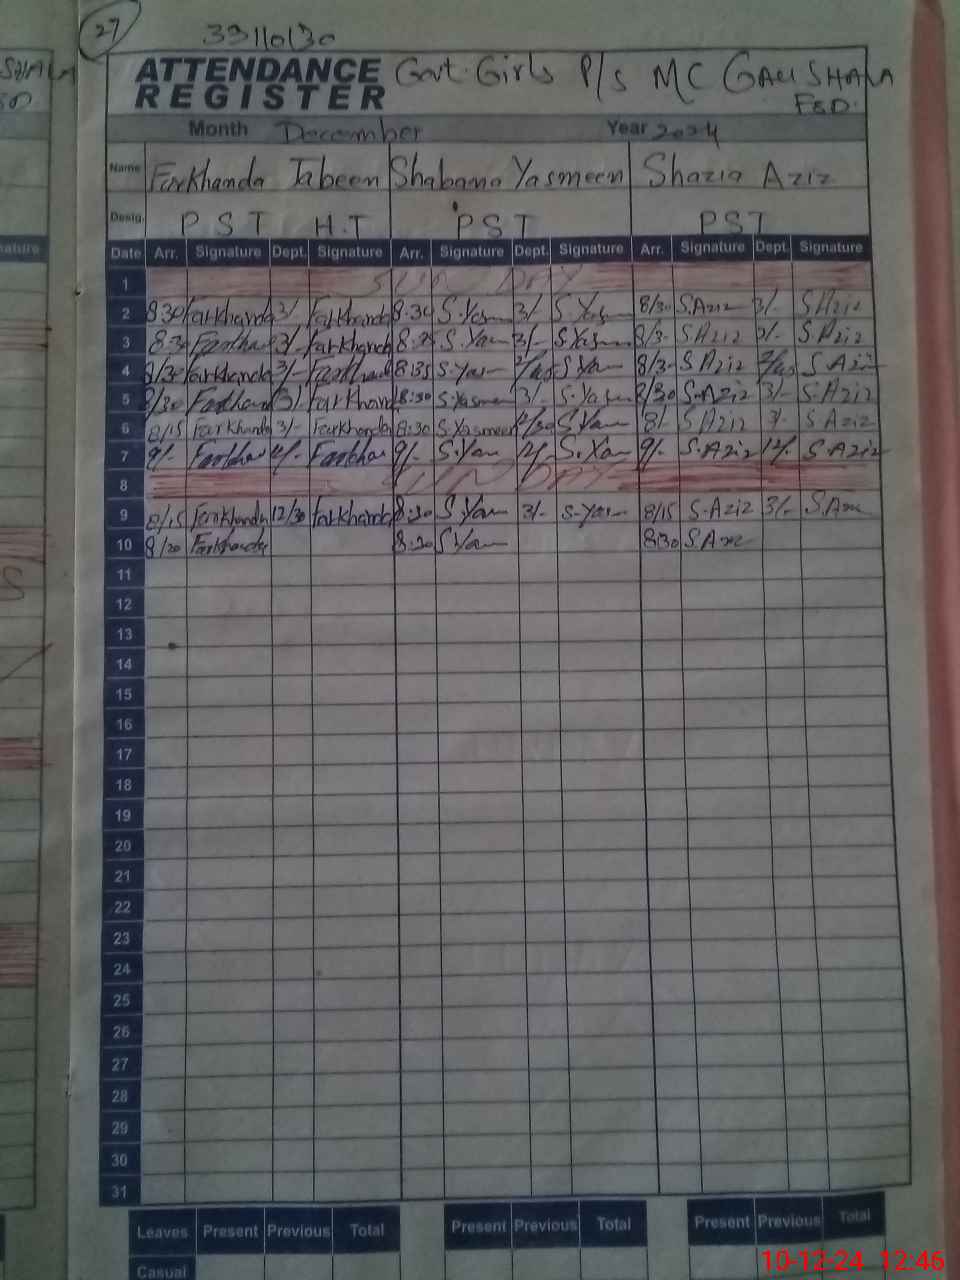 27
33110130
ATTENDANCE REGISTER Govt. Girls P/S MC GAUSHALA
FSD.
Month December Year 2024
Name Farkhanda Jabeen Shabana Yasmeen Shazia Aziz
Desig. P S T H.T PST PST
Date Arr. Signature Dept. Signature Arr. Signature Dept. Signature Arr. Signature Dept. Signature
1 SUNDAY
2 8 30 Farkhanda 3/- Farkhanda 8.30 S.Yasm 3/- S.Yasm 8/30 S.Aziz 3/- S Aziz
3 8 30 3/- Farkhand S.Yam 3/- S.Yasm 8/3- S Aziz 3/- S Aziz
4 8/30 Farkhanda 3/- 8:35 S.Yas S Yam 8/3- S Aziz S Aziz
5 8/30 3/- Farkhand 8:30 S.Yasmee 3/- S.Yasm 8/30 S.Aziz 3/- S.Aziz
6 8/15 Farkhanda 3/- Farkhanda 8:30 S.Yasmeen S.Yam 8/- S Aziz 3/- S Aziz
7 9/- 12/- 9/- S.Yam 12/- S.Yam 9/- S.Aziz 12/- S.Aziz
8 SUNDAY
9 8/15 Farkhanda 12/30 Farkhanda 8:30 S.Yam 3/- S-Yasm 8/15 S-Aziz 3/-
10 8/20 Farkhanda 8:30 S Yam 8:30
11
12
13
14
15
16
17
18
19
20
21
22
23
24
25
26
27
28
29
30
31
Leaves Present Previous Total Present Previous Total Present Previous Total
Casual
10-12-24 12:46